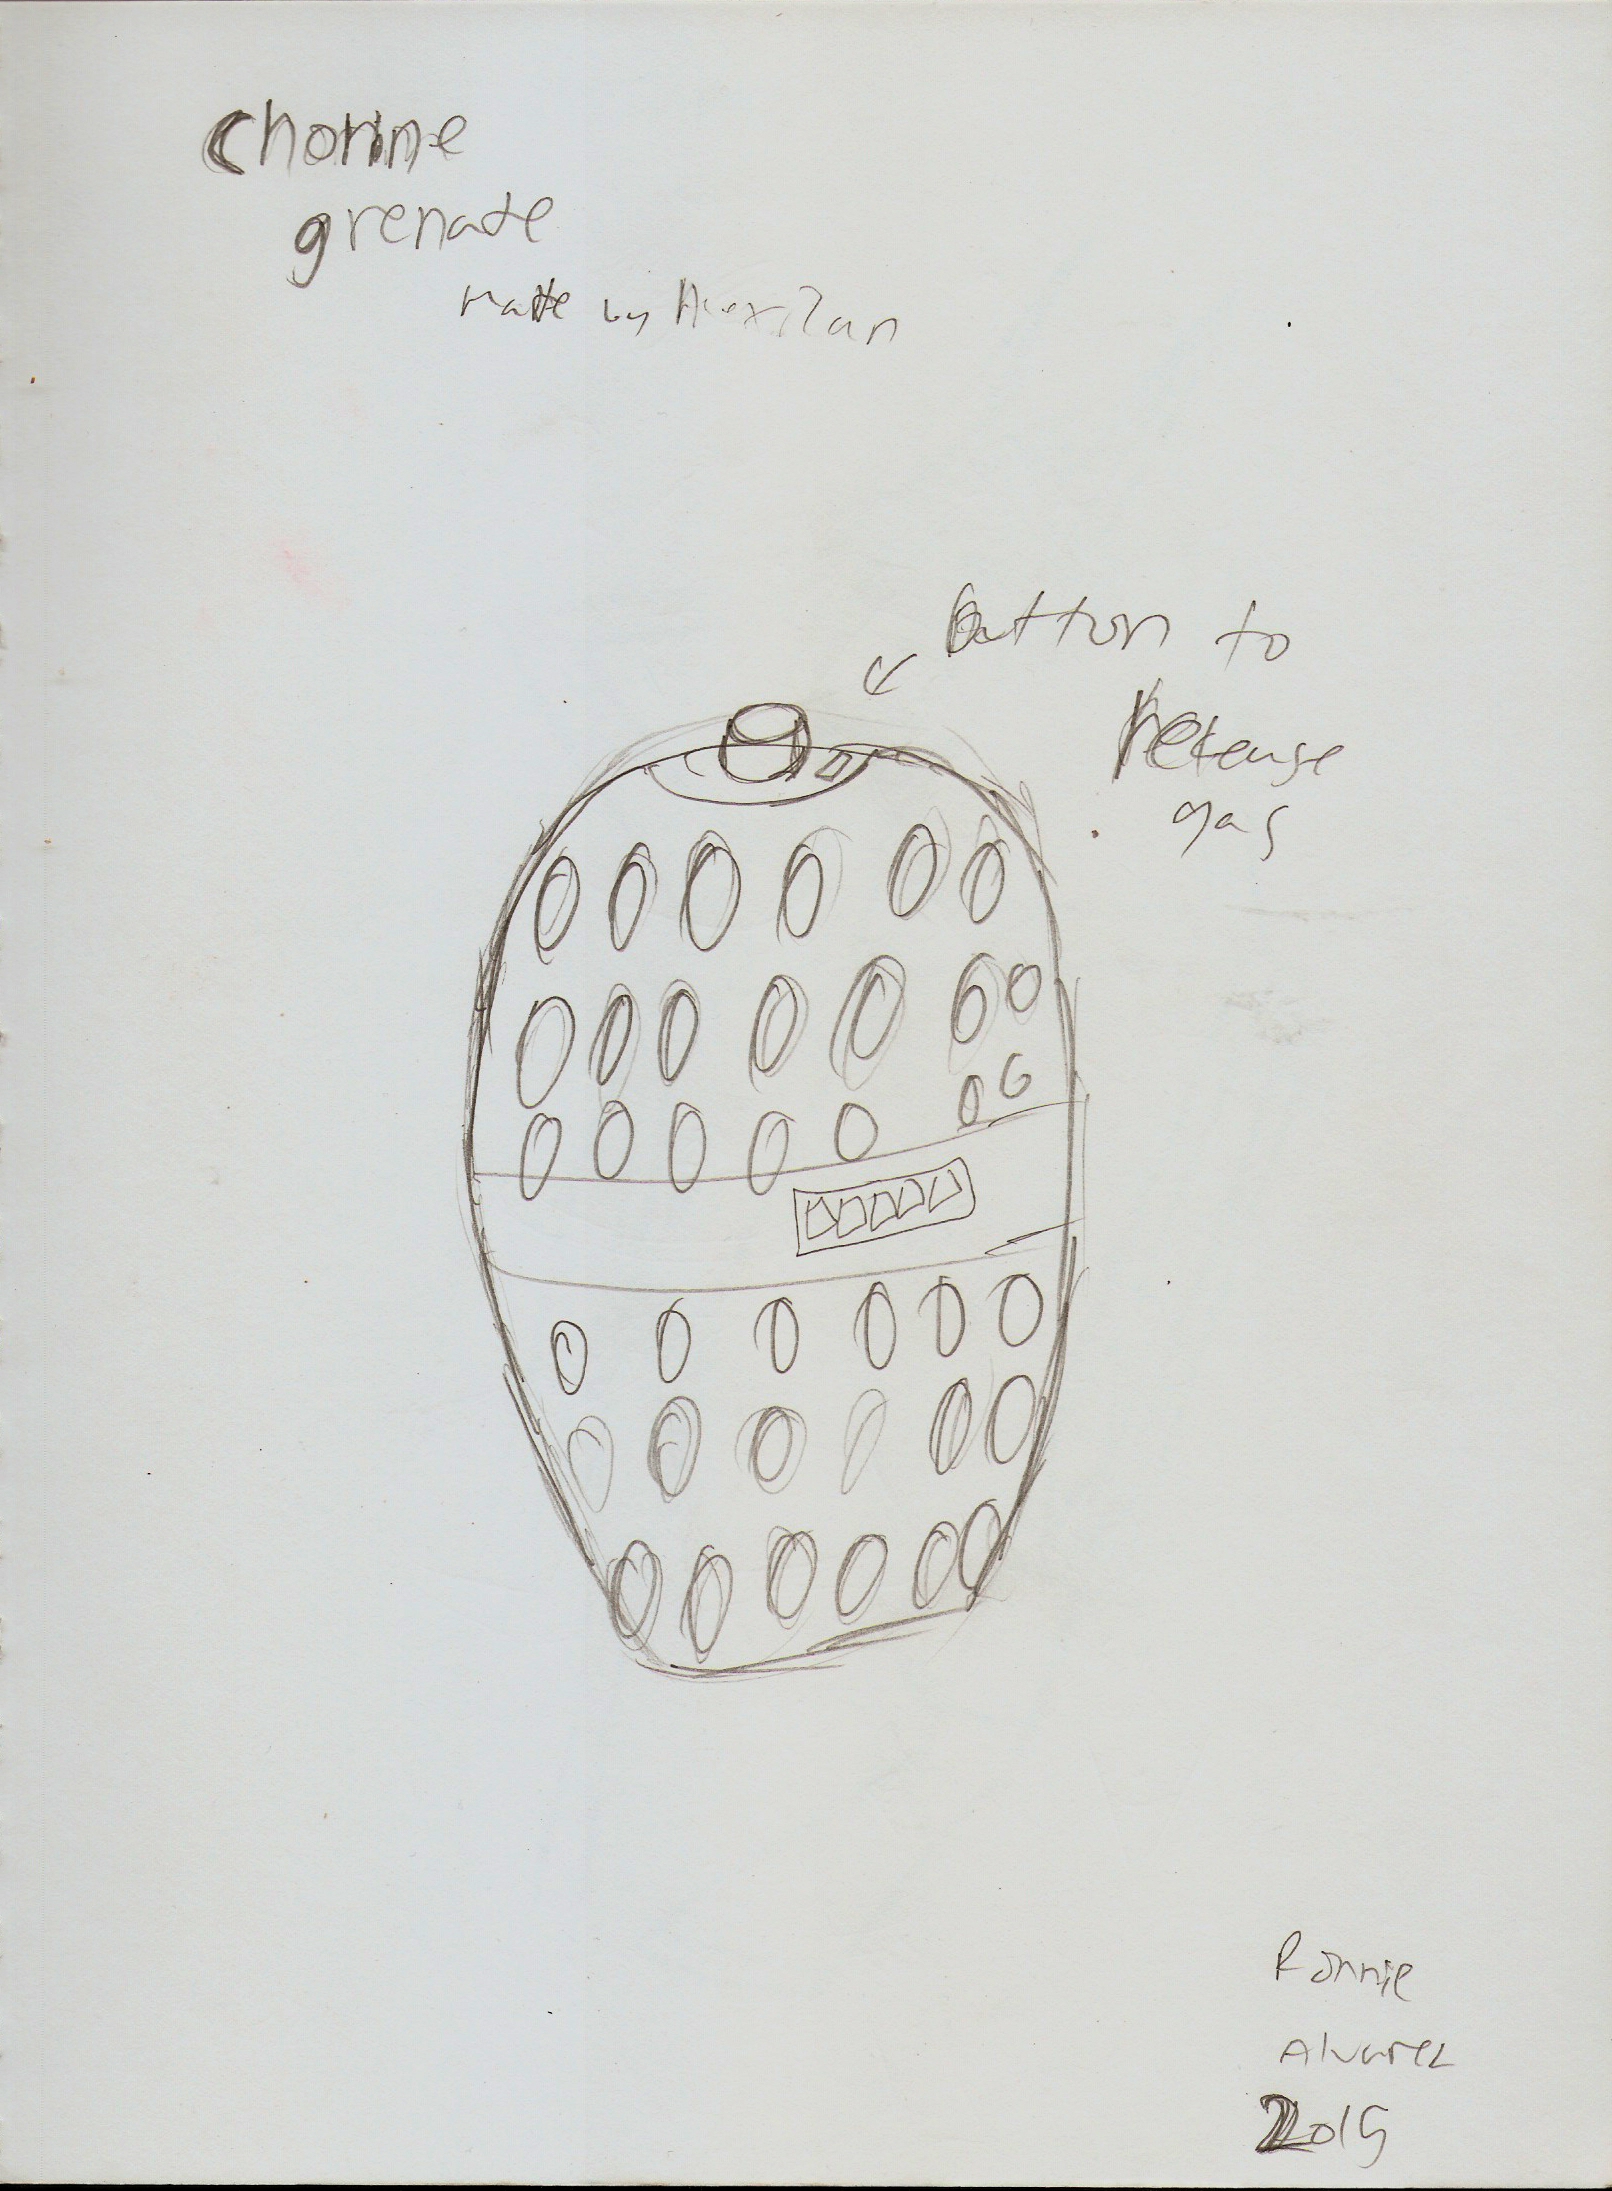 Chorine
grenade
made by
button to
release
gas
Ronnie
Alvarez
2015